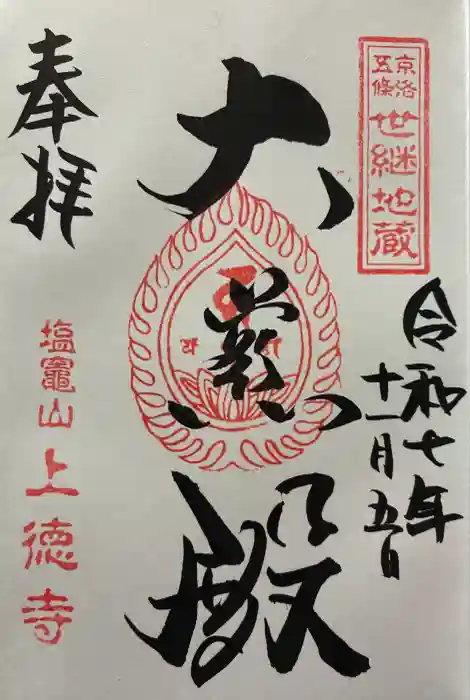 京洛
五條
世継地蔵
令和七年
十一月五日
大慈殿
奉拝
塩竈山上徳寺